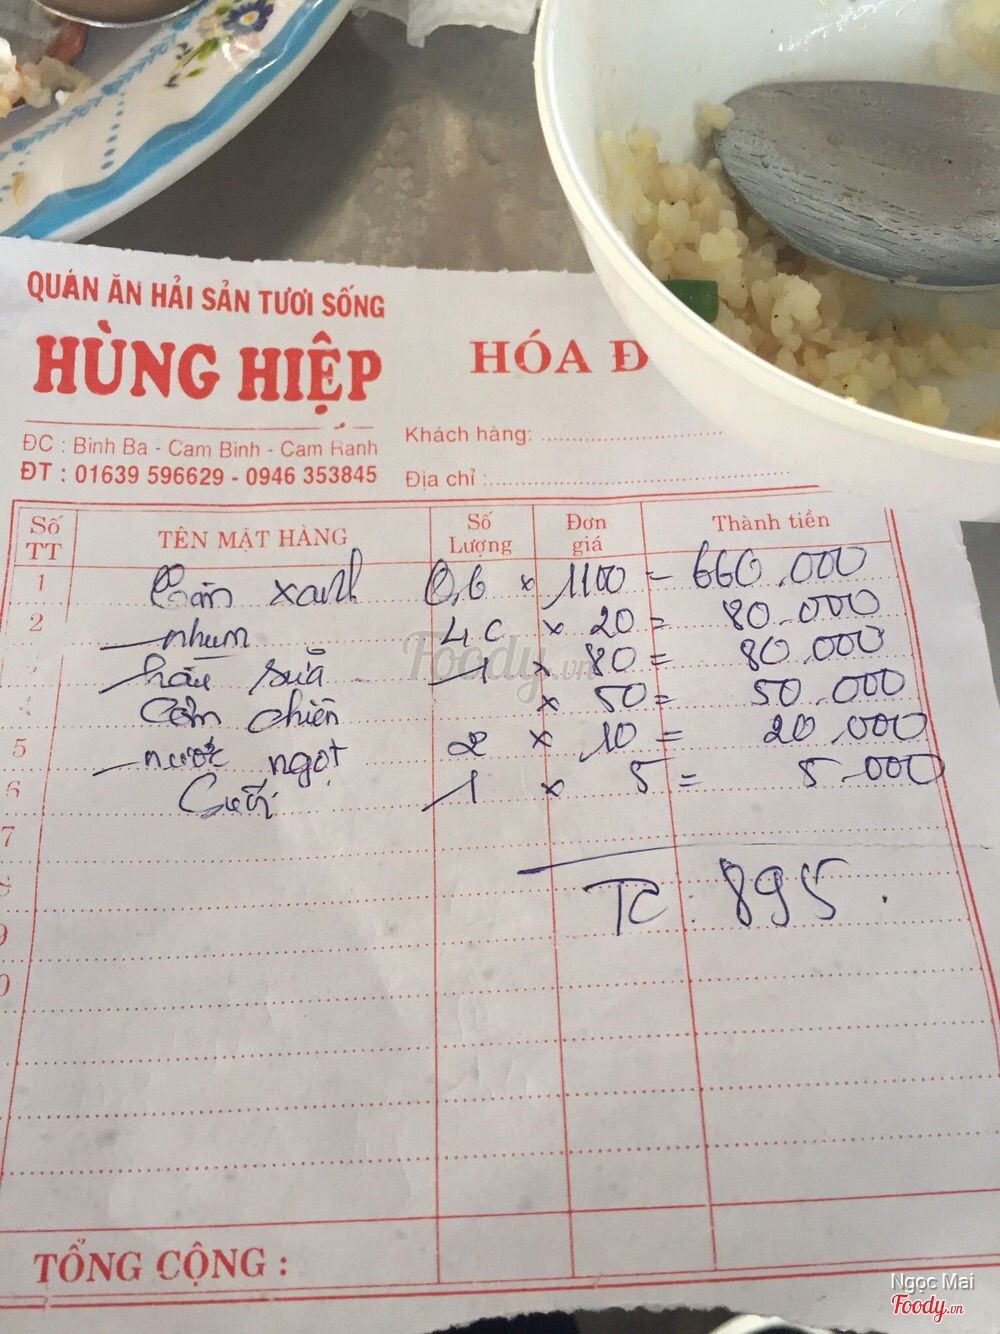 QUÁN ĂN HẢI SẢN TƯƠI SỐNG
HÙNG HIỆP
HÓA Đ
ĐC : Bình Ba - Cam Bình - Cam Ranh
ĐT : 01639 596629 - 0946 353845
Khách hàng:
Địa chỉ :
Số TT TÊN MẶT HÀNG Số Lượng Đơn giá Thành tiền
1 xanh 0,6 x 1100 = 660.000
2 nhum 4C x 20 = 80.000
hàu sữa 1 x 80 = 80.000
Cơm chiên x 50 = 50.000
5 nước ngọt 2 x 10 = 20.000
6 1 x 5 = 5.000
7
TC : 895.
TỔNG CỘNG :
Foody.vn
Ngọc Mai
Foody.vn